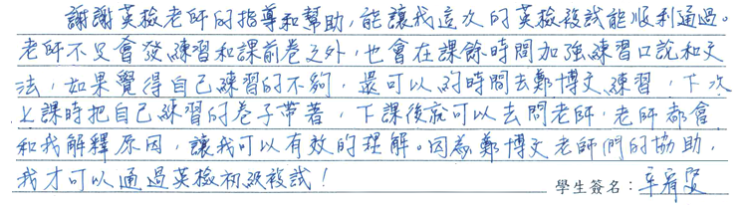 謝謝英檢老師的指導和幫助,能讓我這次的英檢複試能順利通過。
老師不只會發練習和課前卷之外,也會在課餘時間加強練習口說和文
法,如果覺得自己練習的不夠,還可以約時間去鄭博文練習,下次
上課時把自己練習的卷子帶著,下課後就可以去問老師,老師都會
和我解釋原因,讓我可以有效的理解。因為鄭博文老師們的協助,
我才可以通過英檢初級複試!
學生簽名:辛宥